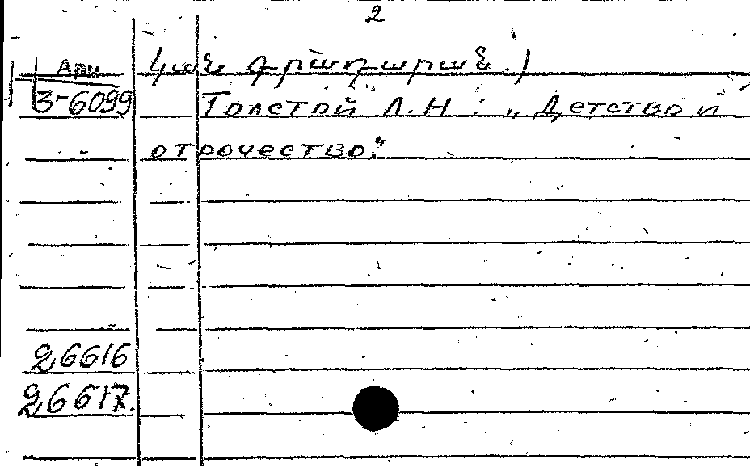 2
Арм կան գրադարան.)
3-6099 Толстой Л.Н : „Детство и
отрочество."
26616
26617.